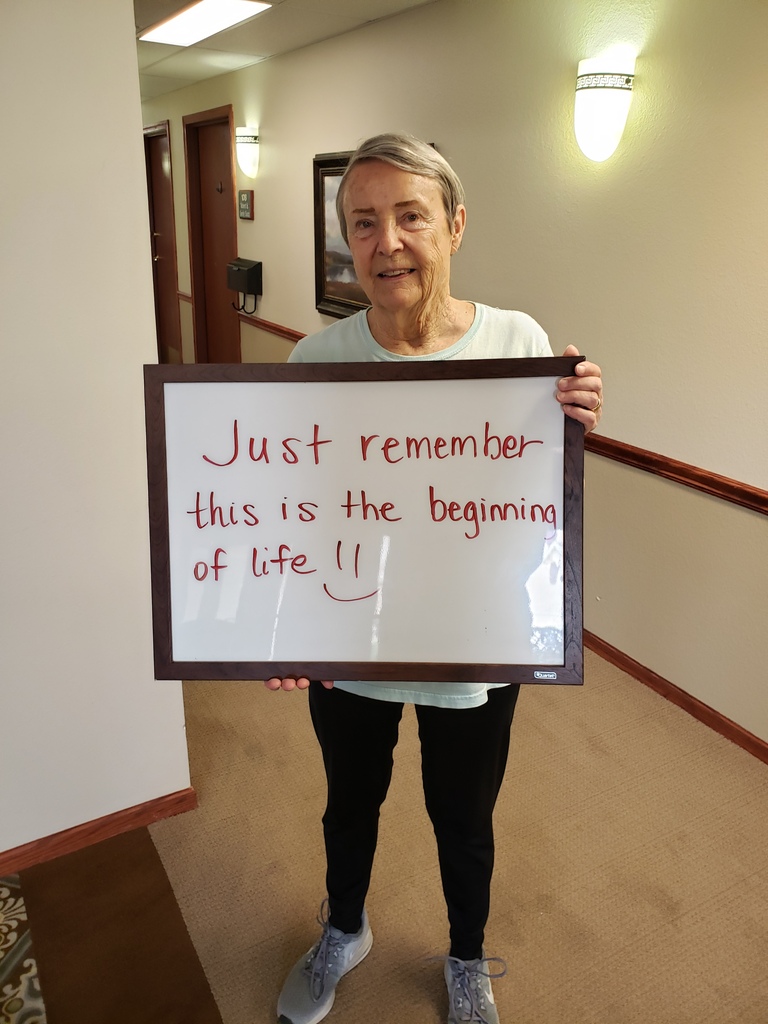 Just remember
this is the beginning
of life !!
Quartet